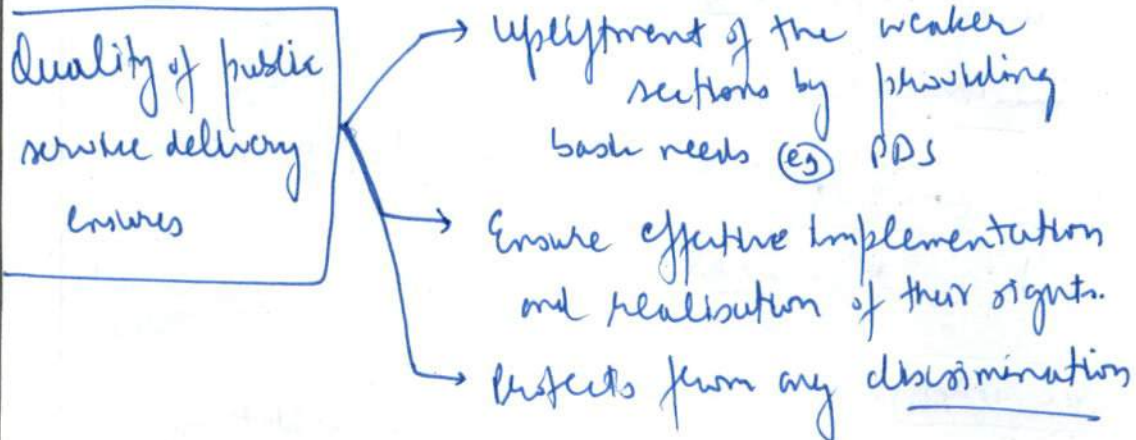 Quality of public
service delivery
ensures
→ Upliftment of the weaker
sections by providing
basic needs (eg) PDS
→ Ensure effective implementation
and realisation of their rights.
→ Protects from any discrimination